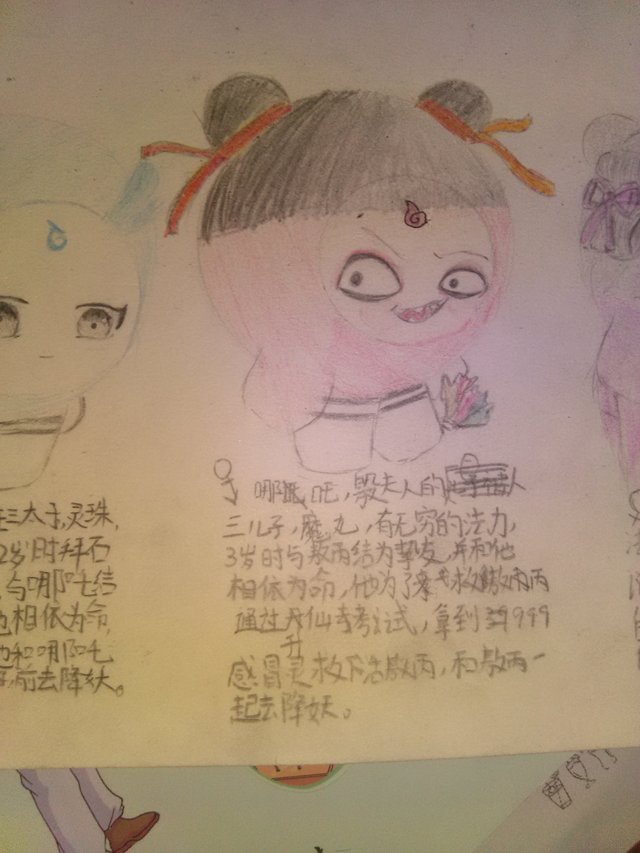 三太子，灵珠，
2岁时拜石
与哪吒结
也相依为命，
也和哪吒
前去降妖。
哪吒，殷夫人的
三儿子，魔丸，有无穷的法力，
3岁时与敖丙结为挚友，并和他
相依为命，他为了救敖丙
通过升仙考试，拿到39999
感冒灵救活敖丙，和敖丙一
起去降妖。